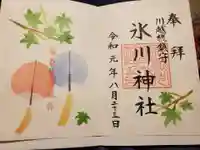 奉拝
川越総鎮守
氷川神社
令和元年八月二十三日